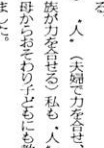 る。
　"人"（夫婦で力を合せ、
族が力を合せる）私も、"人"
母からおそわり子どもにも教
ました。